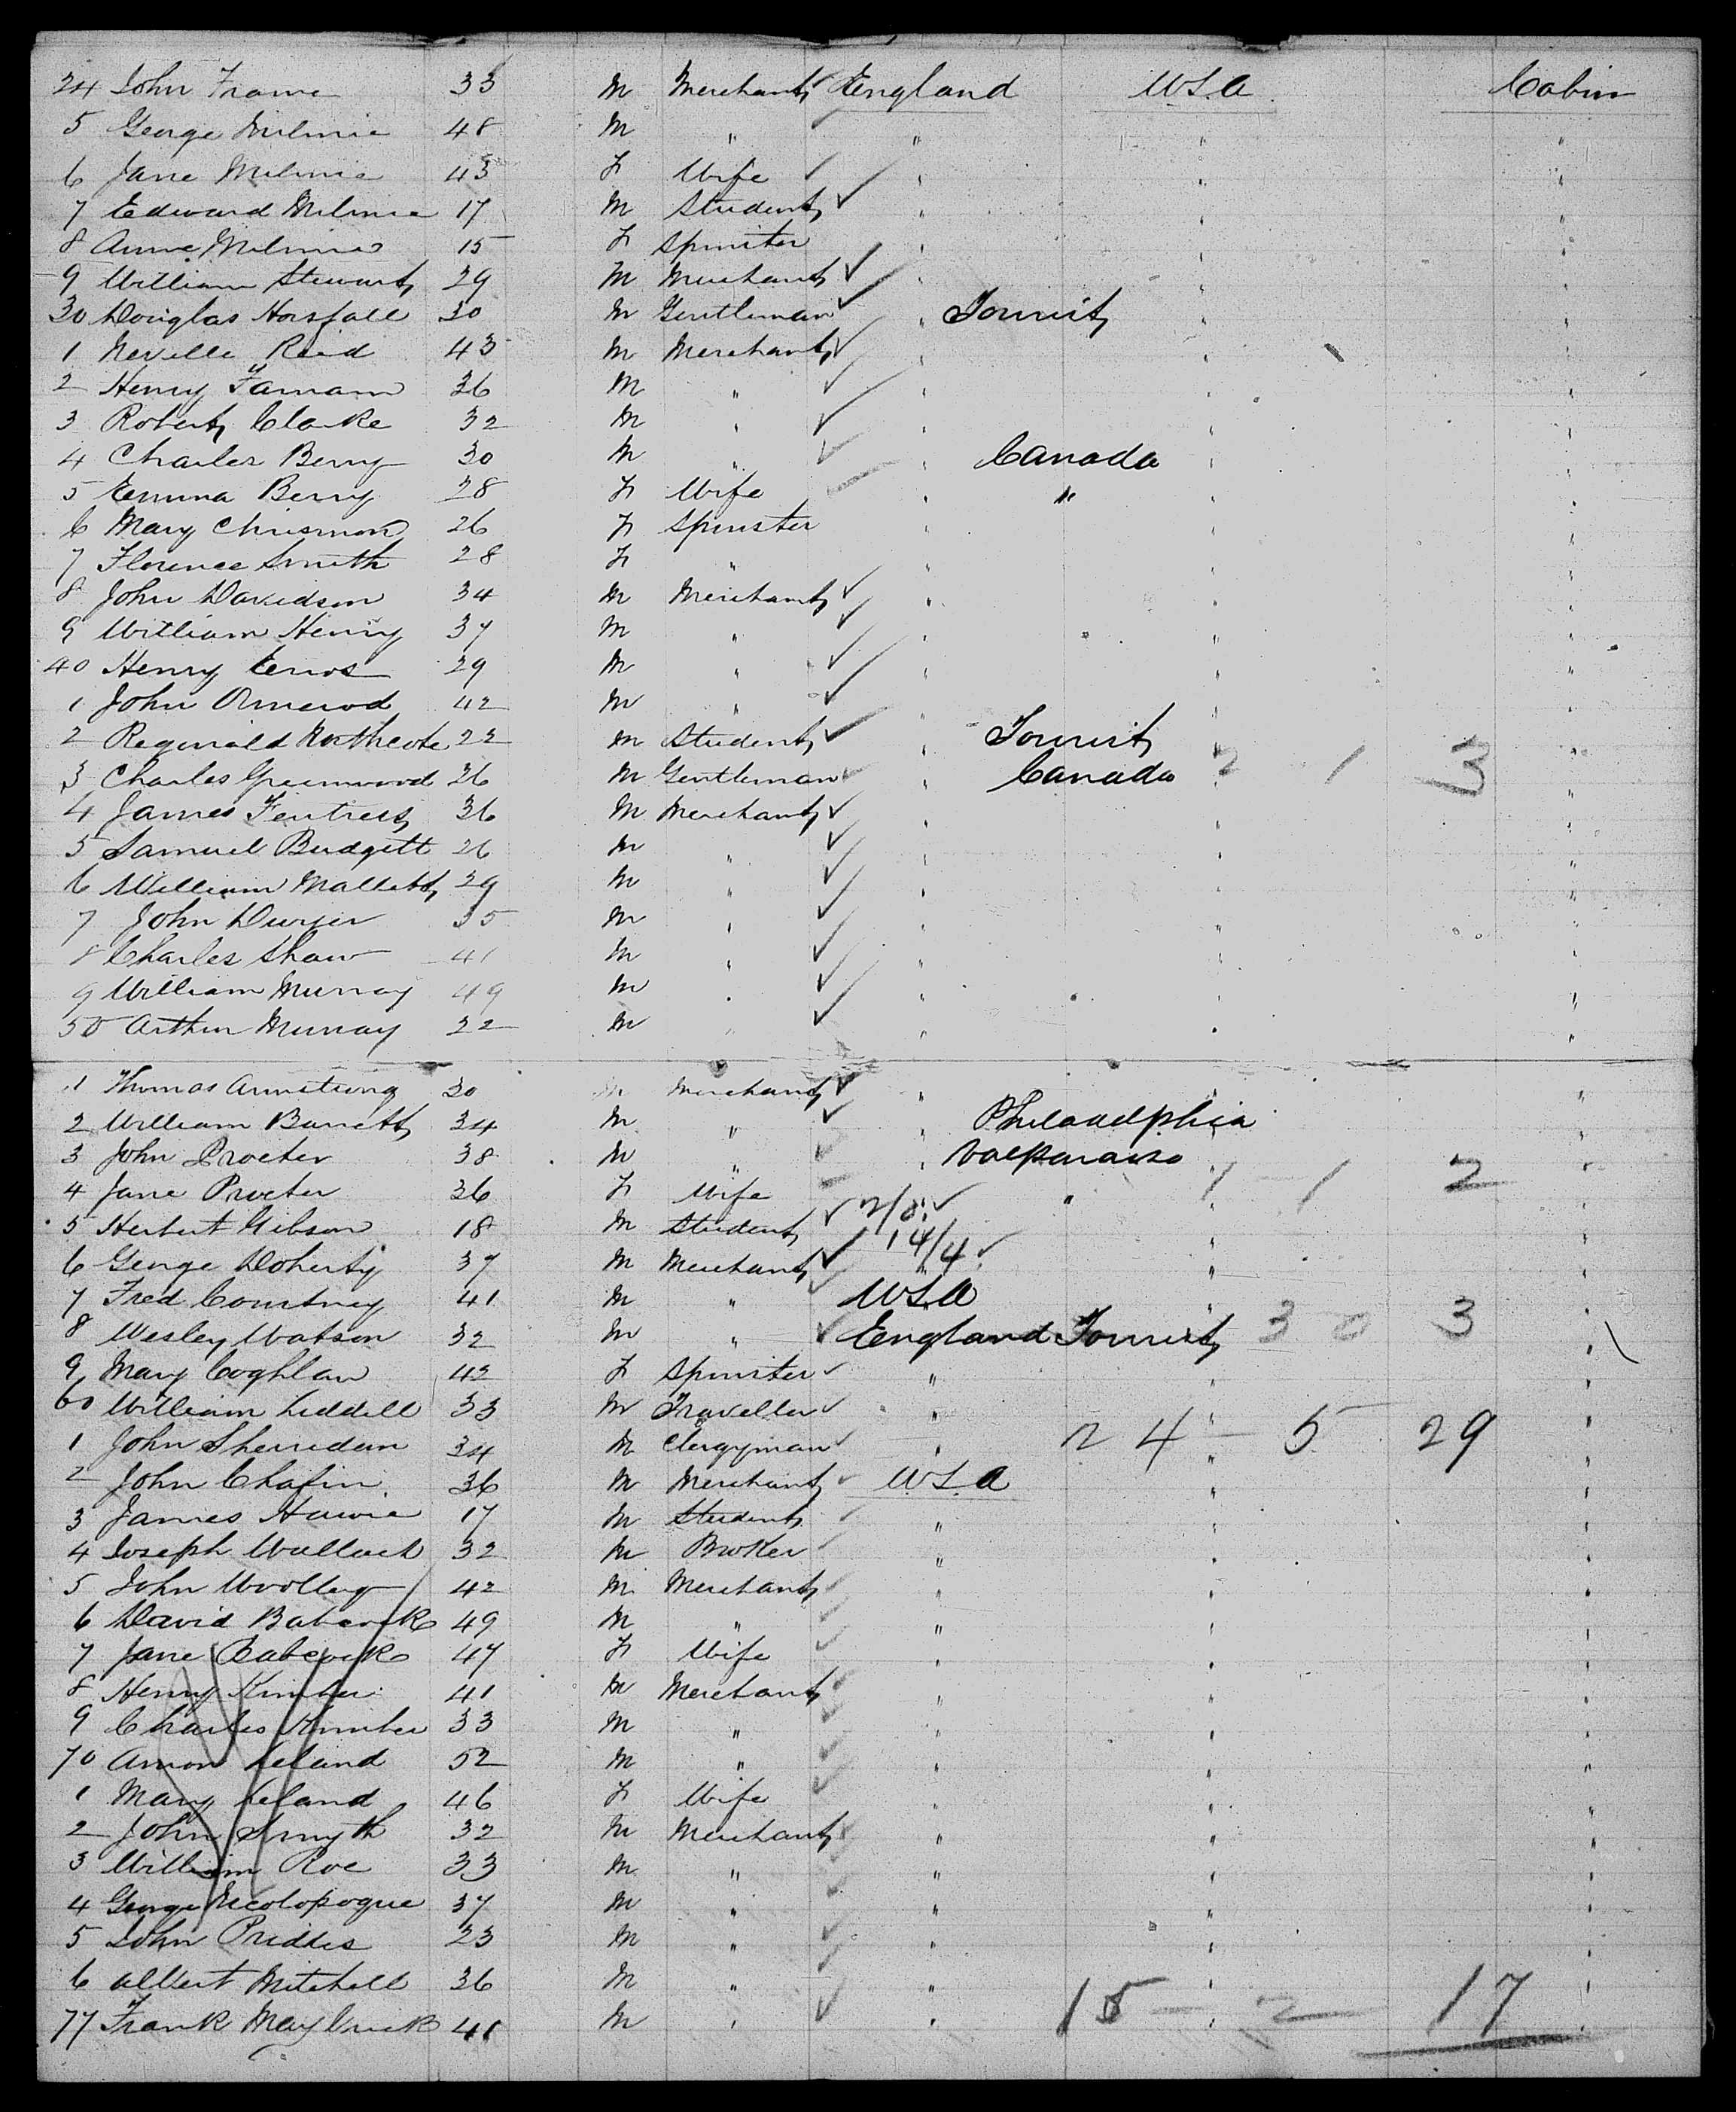 24 John Frame 33 M Merchant England U.S.A Cabin
5 George Milmie 48 M " " " "
6 Jane Milmie 43 F Wife " " "
7 Edward Milmie 17 M Student " " "
8 Annie Milmie 15 F Spinster " " "
9 William Stewart 29 M Merchant " " "
30 Douglas Horsfall 30 M Gentleman " Tourist " "
1 Neville Reid 43 M Merchant " " "
2 Henry Farnam 36 M " " " "
3 Robert Clarke 32 M " " " "
4 Charles Berry 30 M " " Canada " "
5 Emma Berry 28 F Wife " " " "
6 Mary 26 F Spinster " " "
7 Florence Smith 28 F " " " "
8 John Davidson 34 M Merchant " " "
9 William Henry 37 M " " " "
40 Henry 29 M " " " "
1 John Ormerod 42 M " " " "
2 Reginald Northcote 22 M Student " Tourist " "
3 Charles Greenwood 26 M Gentleman " Canada 2 1 3 "
4 James Fentress 36 M Merchant " " "
5 Samuel Budgett 26 M " " " "
6 William Mallett 29 M " " " "
7 John Dwyer 35 M " " " "
8 Charles Shaw 41 M " " " "
9 William Murray 49 M " " " "
50 Arthur Murray 22 M " " " "
1 Thomas Armstrong 30 M Merchant " " "
2 William Barrett 34 M " " Philadelphia "
3 John Procter 38 M " " Valparaiso " 1 - 1 2 "
4 Jane Procter 36 F Wife " " "
5 Herbert Gibson 18 M Student " "
6 George Doherty 37 M Merchant 14/4 " "
7 Fred Courtney 41 M " U.S.A " "
8 Wesley Watson 32 M " England Tourist 3 0 3 "
9 Mary Coghlan 42 F Spinster " " "
60 William Liddell 33 M Traveller " " "
1 John Sherridan 34 M Clergyman " 24 - 5 29 "
2 John Chafin 36 M Merchant U.S.A " "
3 James Howie 17 M Student " " "
4 Joseph Wallach 32 M Broker " " "
5 John Woolley 42 M Merchant " " "
6 David Babcock 49 M " " " "
7 Jane Babcock 47 F Wife " " "
8 Henry Kimber 41 M Merchant " " "
9 Charles Kimber 33 M " " " "
70 Amon Leland 52 M " " " "
1 Mary Leland 46 F Wife " " "
2 John Smyth 32 M Merchant " " "
3 William Roe 33 M " " " "
4 George 37 M " " " "
5 John Priddis 23 M " " " "
6 Albert Mitchell 36 M " " " "
77 Frank Maybrick 41 M " " 15 - 2 17 "